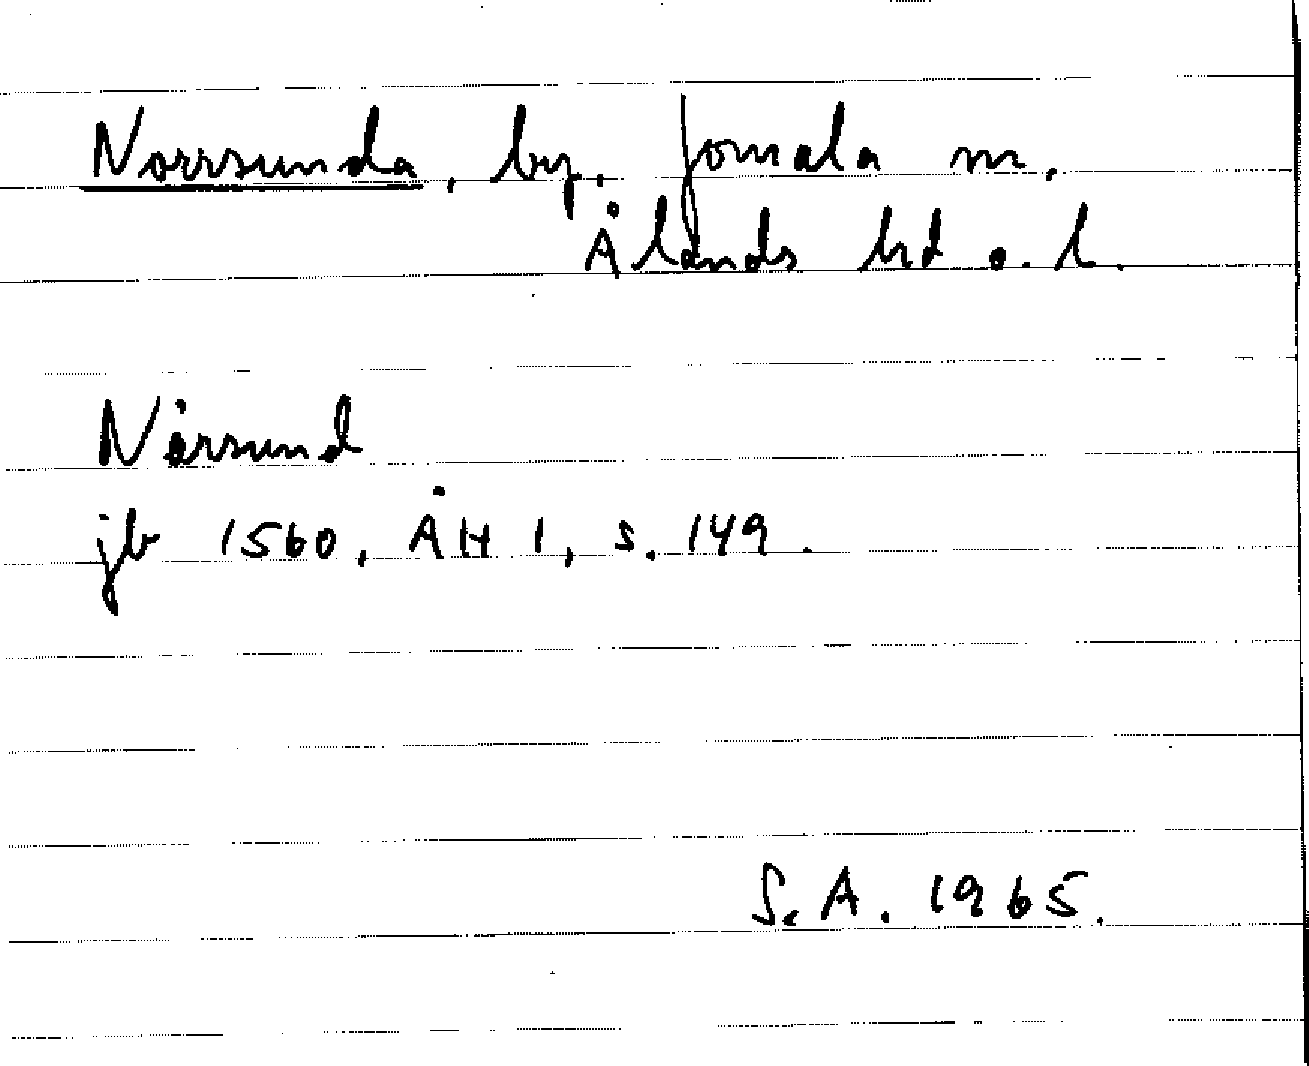 Norrsunda, by, Jomala sn.
Ålands hd o. l.
Nårsund
jb 1560, ÅH 1, s. 149.
S. A. 1965.